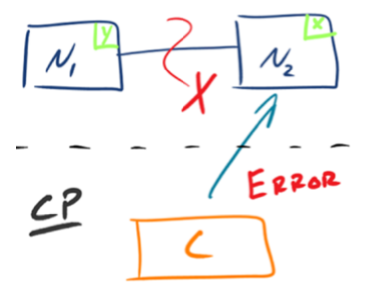 N₁ Y
N₂ X
X
ERROR
CP
C